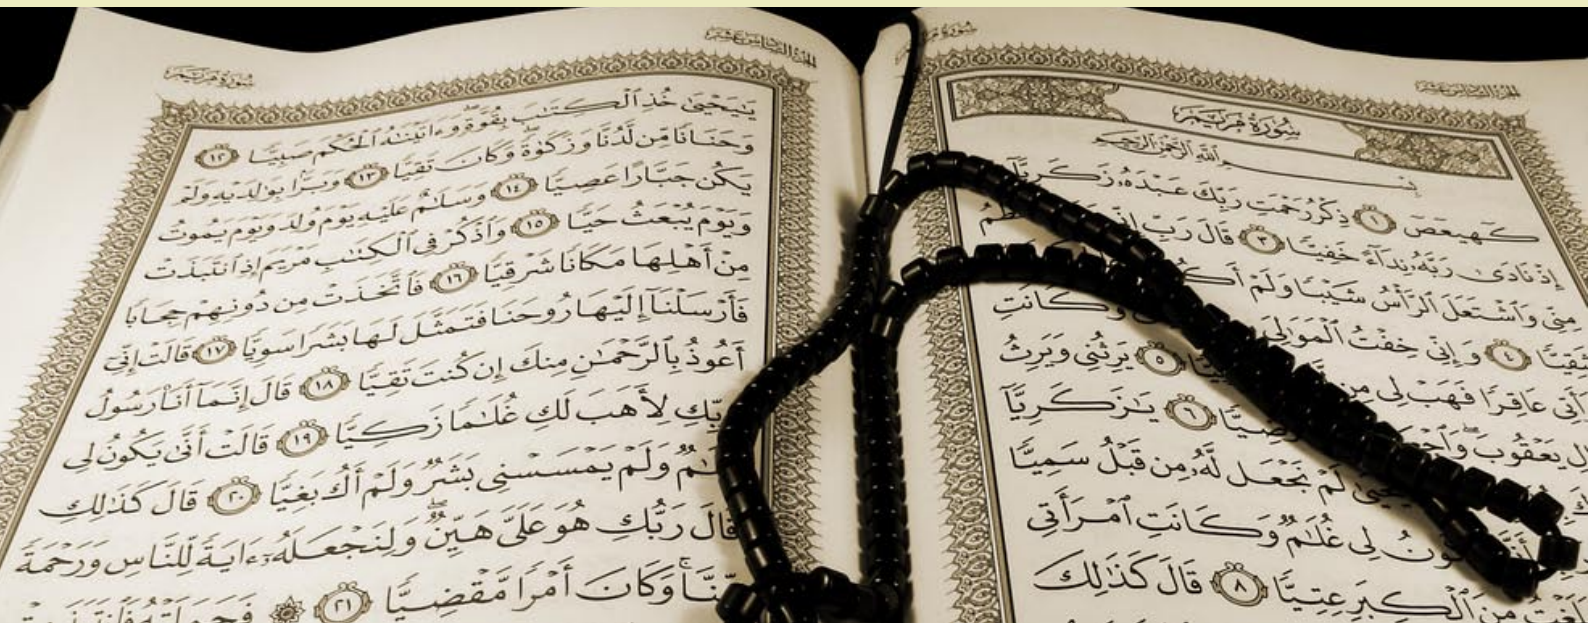 الجزء السادس عشر
سُورَةُ مَرْيَمَ
بِسْمِ ٱللَّهِ ٱلرَّحْمَٰنِ ٱلرَّحِيمِ
كٓهيعٓصٓ ١ ذِكْرُ رَحْمَتِ رَبِّكَ عَبْدَهُۥ زَكَرِيَّآ
إِذْ نَادَىٰ رَبَّهُۥ نِدَآءً خَفِيًّا ٣ قَالَ رَبِّ
مِنِّي وَٱشْتَعَلَ ٱلرَّأْسُ شَيْبًا وَلَمْ
٤ وَإِنِّي خِفْتُ ٱلْمَوَٰلِيَ وَكَانَتِ
عَاقِرًا فَهَبْ لِي مِن ٥ يَرِثُنِي وَيَرِثُ
يَعْقُوبَ ٦ يَٰزَكَرِيَّآ
يَحْيَىٰ لَمْ نَجْعَل لَّهُۥ مِن قَبْلُ سَمِيًّا
لِي غُلَٰمٌ وَكَانَتِ ٱمْرَأَتِي
مِنَ ٱلْكِبَرِ عِتِيًّا ٨ قَالَ كَذَٰلِكَ
الجزء السادس عشر
سُورَةُ مَرْيَمَ
يَٰيَحْيَىٰ خُذِ ٱلْكِتَٰبَ بِقُوَّةٍ وَءَاتَيْنَٰهُ ٱلْحُكْمَ صَبِيًّا ١٢
وَحَنَانًا مِّن لَّدُنَّا وَزَكَوٰةً وَكَانَ تَقِيًّا ١٣ وَبَرًّۢا بِوَٰلِدَيْهِ وَلَمْ
يَكُن جَبَّارًا عَصِيًّا ١٤ وَسَلَٰمٌ عَلَيْهِ يَوْمَ وُلِدَ وَيَوْمَ يَمُوتُ
وَيَوْمَ يُبْعَثُ حَيًّا ١٥ وَٱذْكُرْ فِي ٱلْكِتَٰبِ مَرْيَمَ إِذِ ٱنتَبَذَتْ
مِنْ أَهْلِهَا مَكَانًا شَرْقِيًّا ١٦ فَٱتَّخَذَتْ مِن دُونِهِمْ حِجَابًا
فَأَرْسَلْنَآ إِلَيْهَا رُوحَنَا فَتَمَثَّلَ لَهَا بَشَرًا سَوِيًّا ١٧ قَالَتْ إِنِّيٓ
أَعُوذُ بِٱلرَّحْمَٰنِ مِنكَ إِن كُنتَ تَقِيًّا ١٨ قَالَ إِنَّمَآ أَنَا۠ رَسُولُ
رَبِّكِ لِأَهَبَ لَكِ غُلَٰمًا زَكِيًّا ١٩ قَالَتْ أَنَّىٰ يَكُونُ لِي
وَلَمْ يَمْسَسْنِي بَشَرٌ وَلَمْ أَكُ بَغِيًّا ٢٠ قَالَ كَذَٰلِكِ
قَالَ رَبُّكِ هُوَ عَلَيَّ هَيِّنٌ وَلِنَجْعَلَهُۥٓ ءَايَةً لِّلنَّاسِ وَرَحْمَةً
مِّنَّا وَكَانَ أَمْرًا مَّقْضِيًّا ٢١